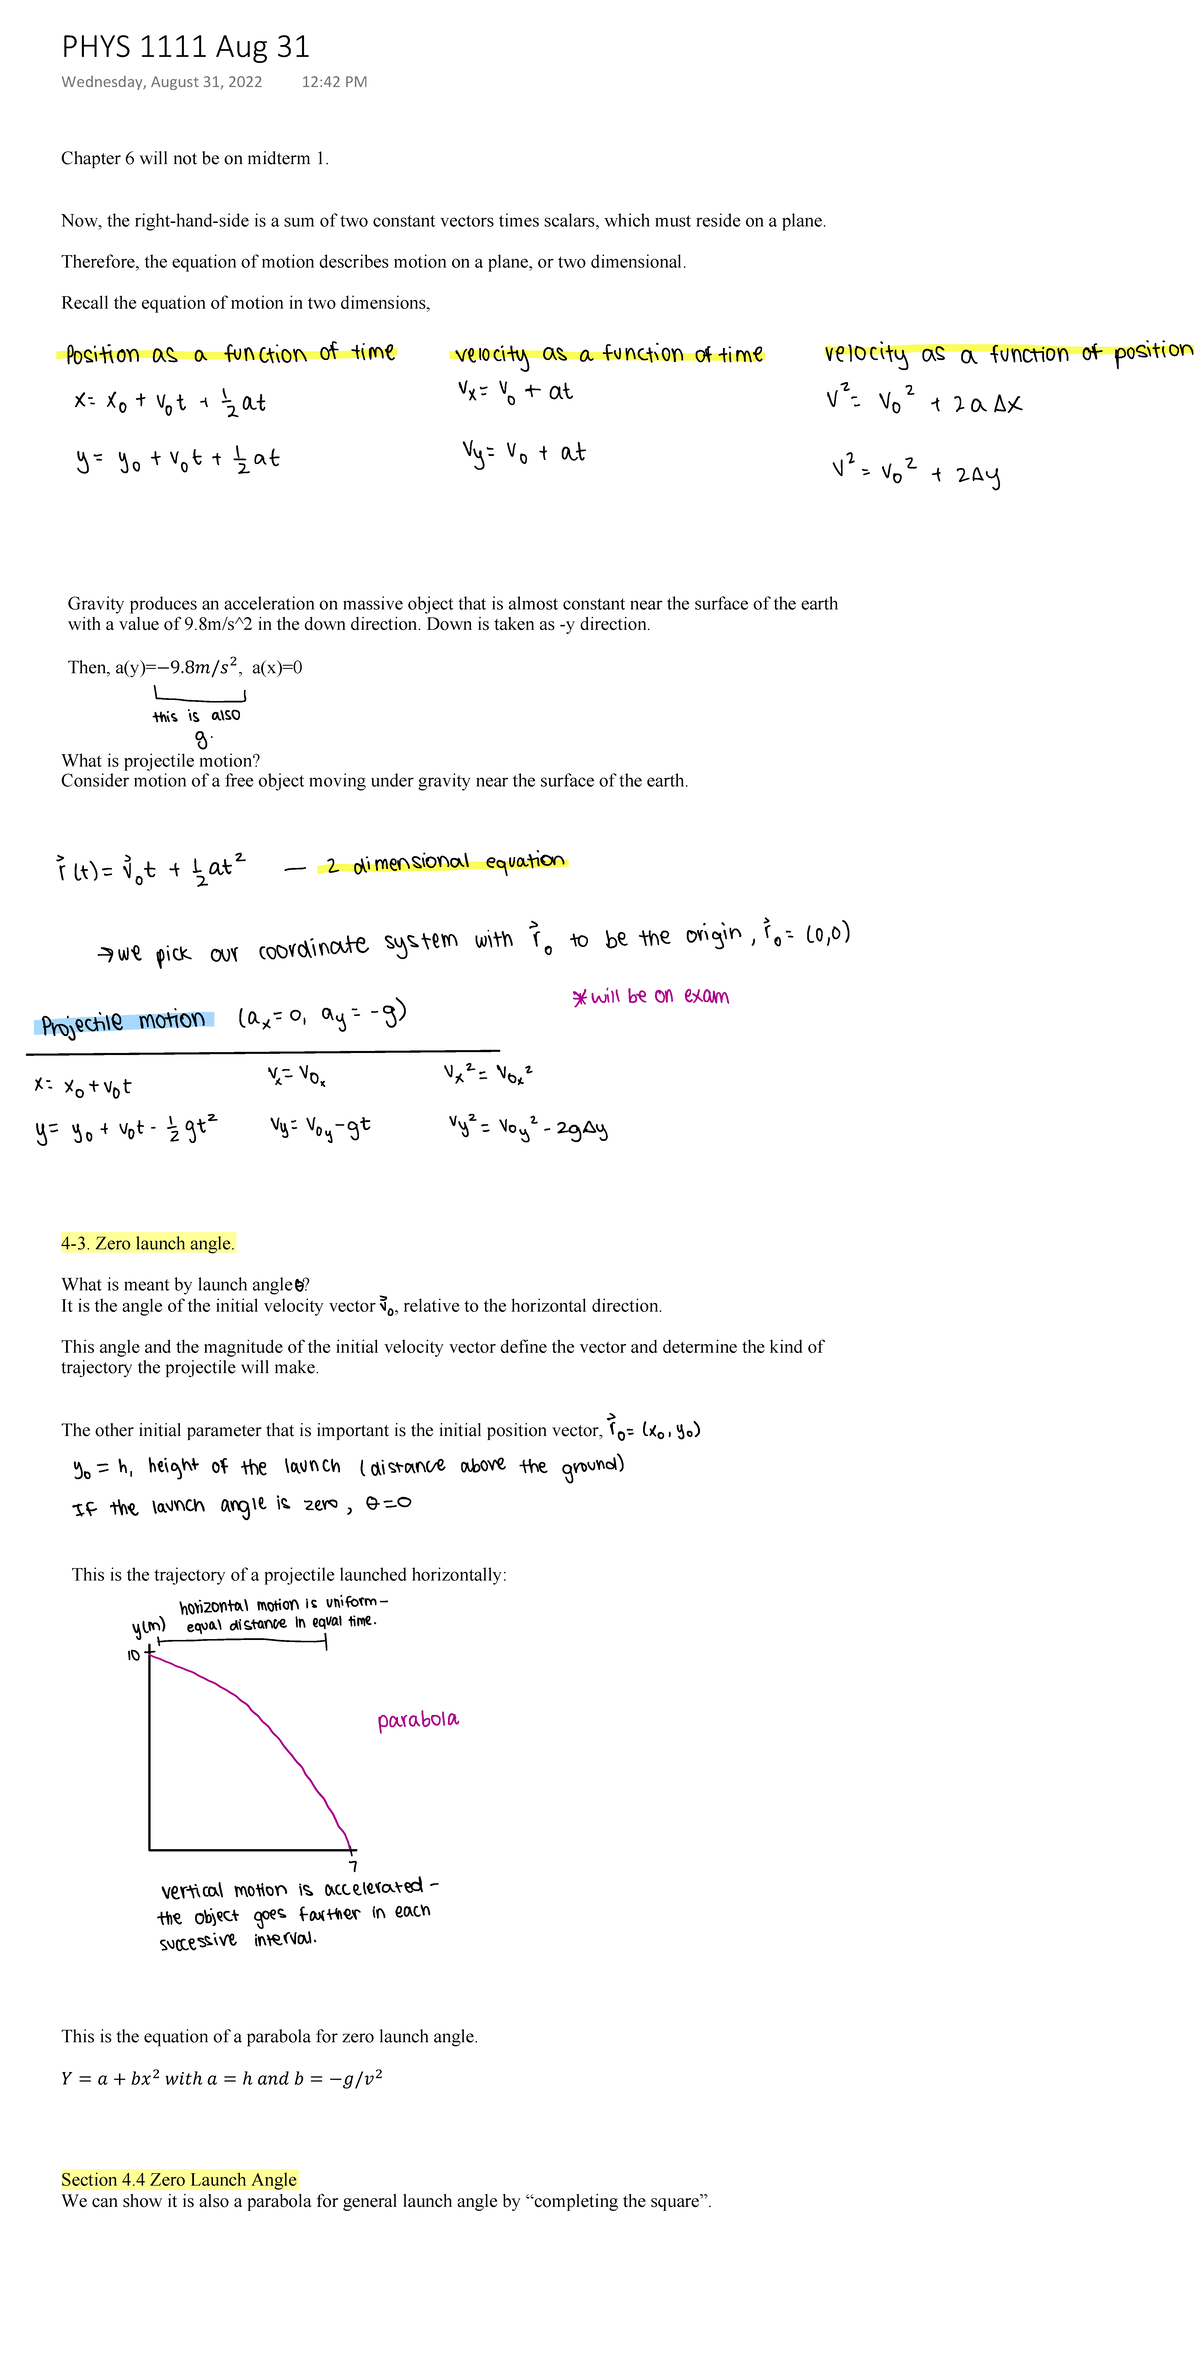 PHYS 1111 Aug 31
Wednesday, August 31, 2022 12:42 PM
Chapter 6 will not be on midterm 1.
Now, the right-hand-side is a sum of two constant vectors times scalars, which must reside on a plane.
Therefore, the equation of motion describes motion on a plane, or two dimensional.
Recall the equation of motion in two dimensions,
Position as a function of time velocity as a function of time velocity as a function of position
x = x₀ + v₀t + ½at vₓ = v₀ + at v² = v₀² + 2aΔx
y = y₀ + v₀t + ½at vy = v₀ + at v² = v₀² + 2Δy
Gravity produces an acceleration on massive object that is almost constant near the surface of the earth
with a value of 9.8m/s^2 in the down direction. Down is taken as -y direction.
Then, a(y)=−9.8m/s², a(x)=0
this is also
g.
What is projectile motion?
Consider motion of a free object moving under gravity near the surface of the earth.
r⃗(t) = v⃗₀t + ½at² — 2 dimensional equation
→ we pick our coordinate system with r⃗₀ to be the origin, r⃗₀ = (0,0)
*will be on exam
Projectile motion (aₓ = 0, ay = -g)
x = x₀ + v₀t vₓ = v₀ₓ vₓ² = v₀ₓ²
y = y₀ + v₀t - ½gt² vy = v₀y - gt vy² = v₀y² - 2gΔy
4-3. Zero launch angle.
What is meant by launch angle θ?
It is the angle of the initial velocity vector v⃗₀, relative to the horizontal direction.
This angle and the magnitude of the initial velocity vector define the vector and determine the kind of
trajectory the projectile will make.
The other initial parameter that is important is the initial position vector, r⃗₀ = (x₀, y₀)
y₀ = h, height of the launch (distance above the ground)
If the launch angle is zero, θ=0
This is the trajectory of a projectile launched horizontally:
horizontal motion is uniform-
equal distance in equal time.
y(m)
10
parabola
7
vertical motion is accelerated -
the object goes farther in each
successive interval.
This is the equation of a parabola for zero launch angle.
Y = a + bx² with a = h and b = −g/v²
Section 4.4 Zero Launch Angle
We can show it is also a parabola for general launch angle by “completing the square”.